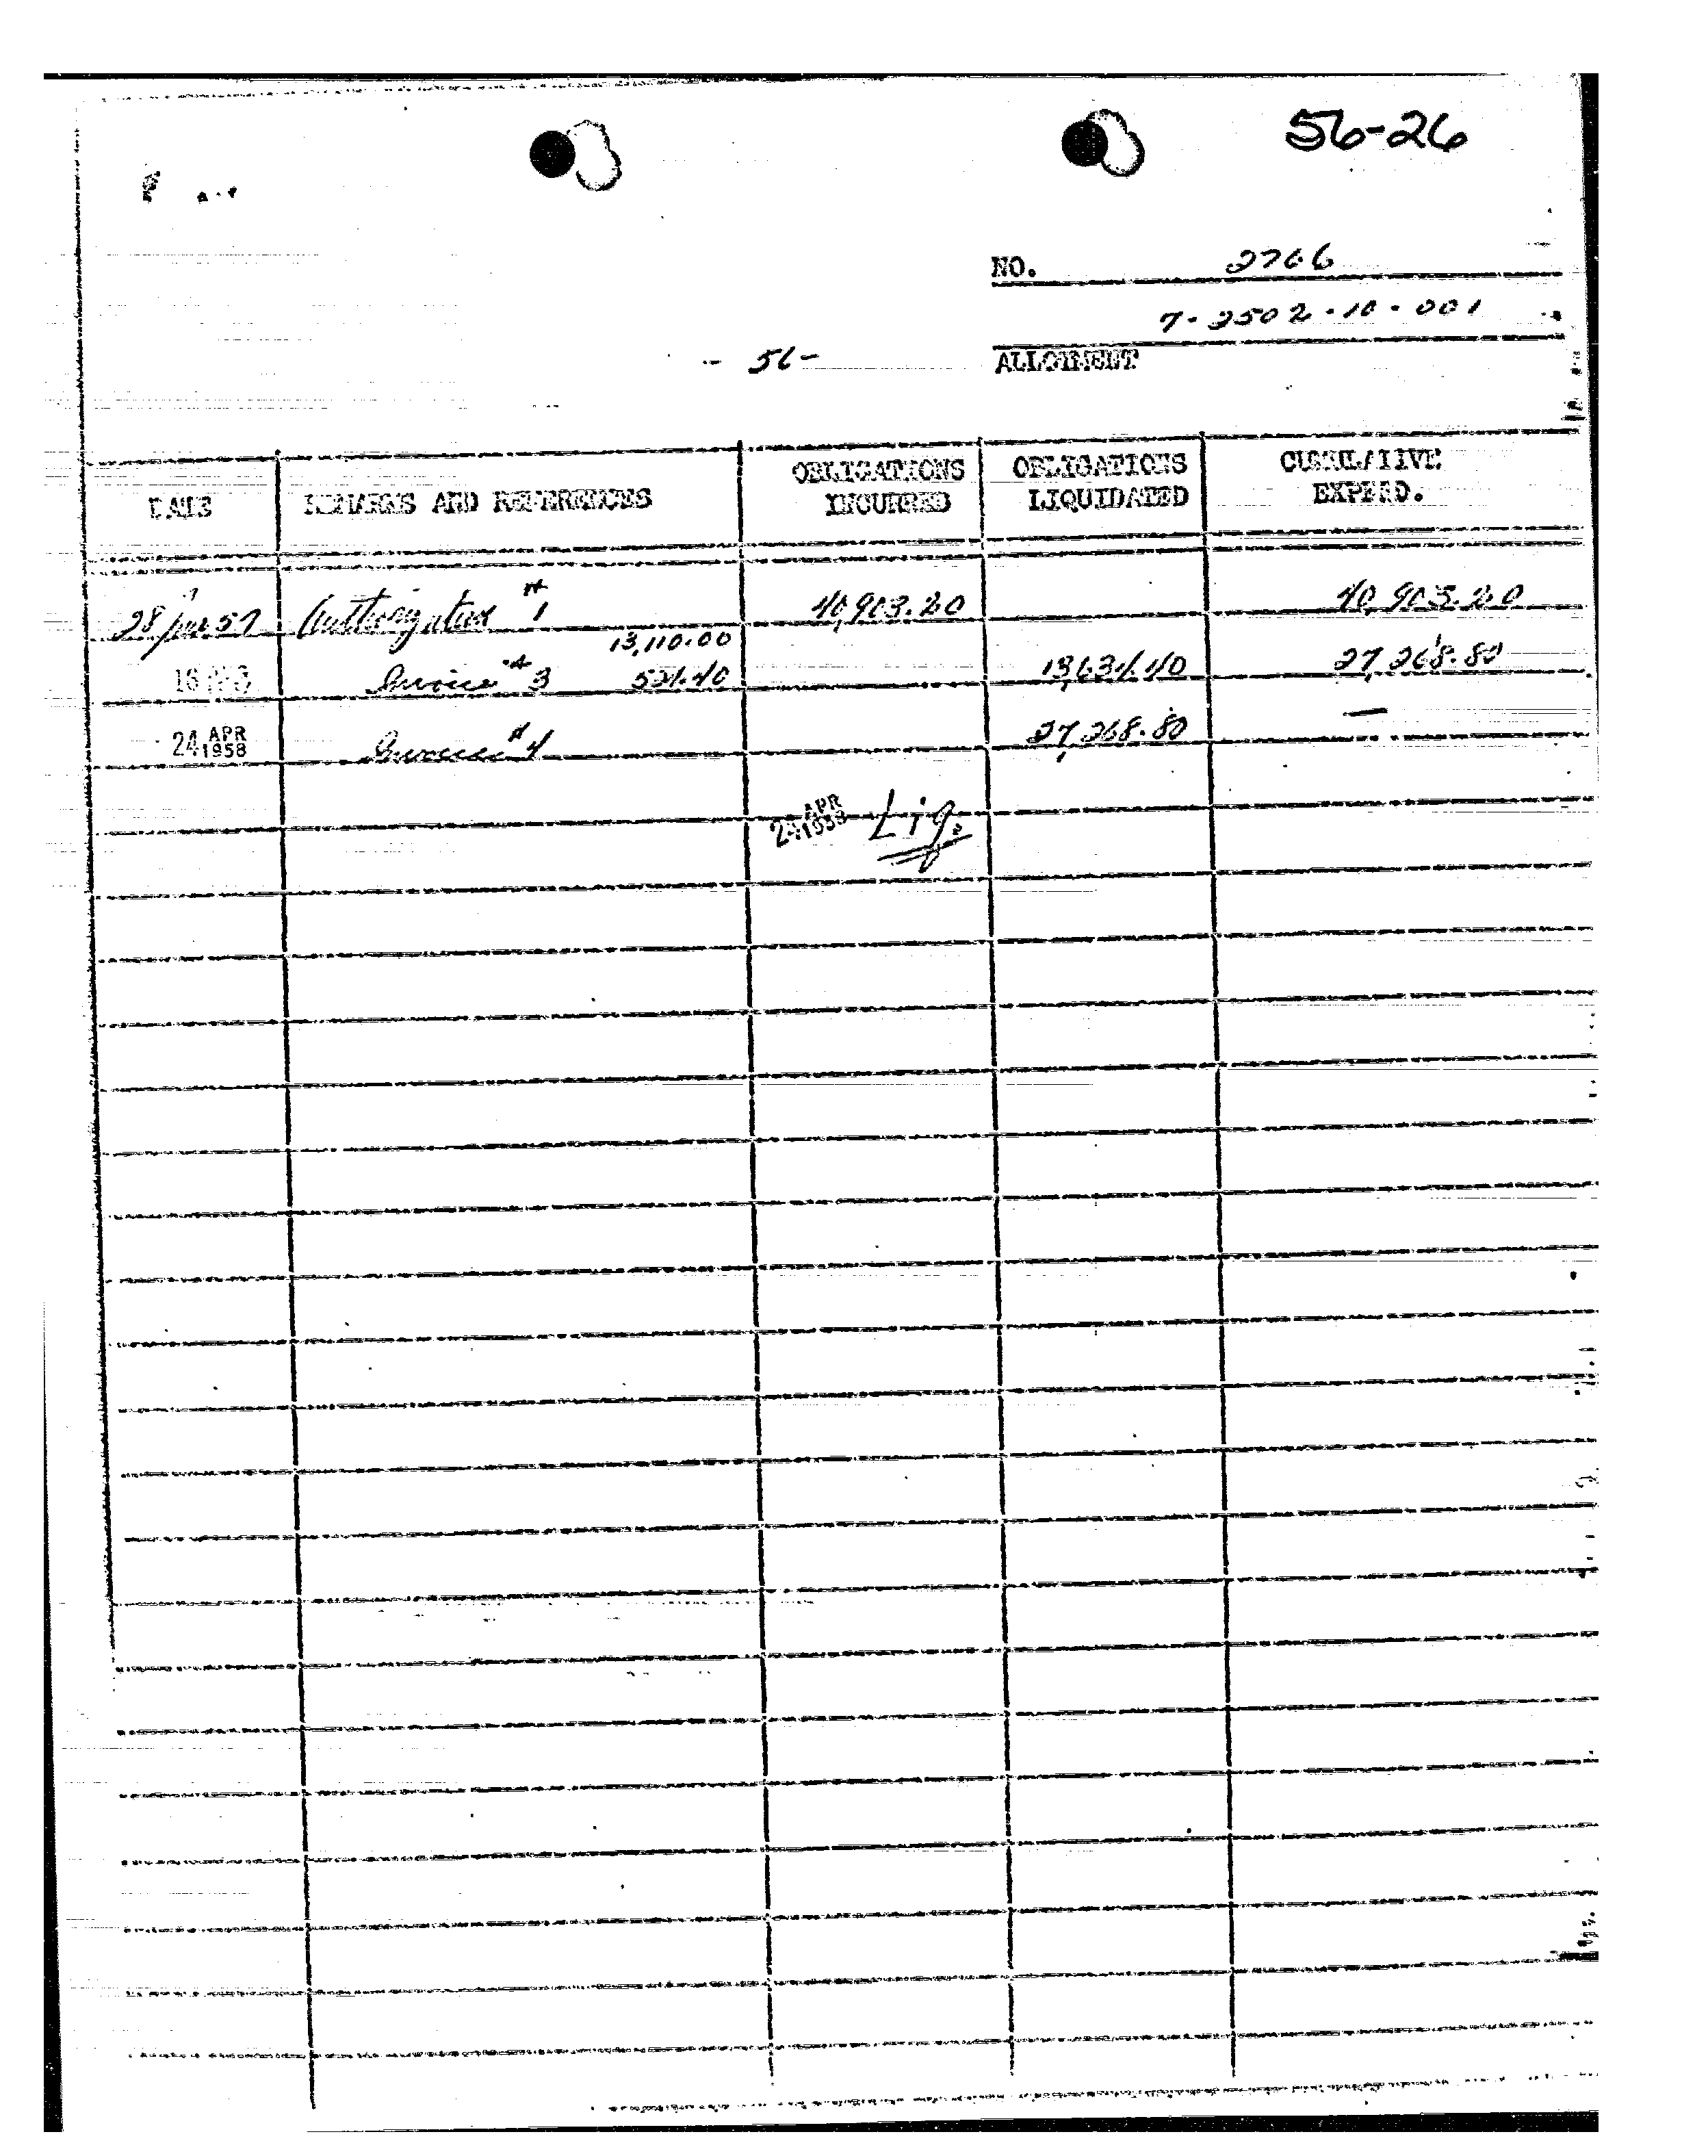 56-26
NO. 2766
7-2502-10-001
- 56- ALLOTMENT
DATE REMARKS AND REFERENCES OBLIGATIONS INCURRED OBLIGATIONS LIQUIDATED CUMULATIVE EXPEND.
28 Jun 57 Authorization #1 40,903.20 40,903.20
13,110.00
Invoice #3 524.40 13,634.40 27,268.80
24 APR 1958 Invoice #4 27,268.80 —
24 APR 1958 Liq.